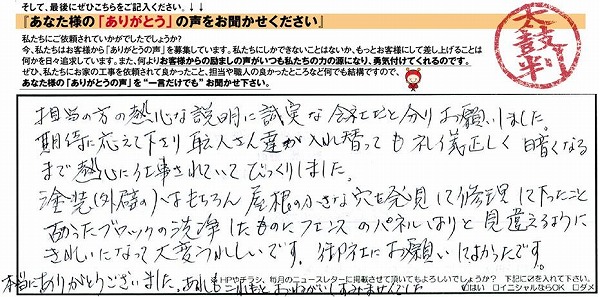 そして、最後にぜひこちらをご記入ください。↓↓
『あなた様の「ありがとう」の声をお聞かせください』
私たちにご依頼されていかがでしたでしょうか?
今、私たちはお客様から「ありがとうの声」を募集しています。私たちにしかできないことはないか、もっとお客様にして差し上げることは
何かを日々追求しています。また、何よりお客様からの励ましの声がいつも私たちの力の源になり、勇気付けてくれるのです。
ぜひ、私たちにお家の工事を依頼されて良かったこと、担当や職人の良かったところなど何でも結構ですので、
あなた様の「ありがとうの声」を“一言だけでも”お聞かせ下さい。
太鼓判
担当の方の熱心な説明に誠実な会社だと分りお願いしました。
期待に応えて下さり職人さん達が入れ替っても礼儀正しく暗くなる
まで熱心に仕事されていてびっくりしました。
塗装(外壁の)はもちろん屋根の小さな穴を発見して修理して下ったこと
ブロックの洗浄したものにフェンスのパネルはりと見違えるように
きれいになって大変うれしいです。御社にお願いしてよかったです。
本当にありがとうございました。
※HPやチラシ、毎月のニュースレターに掲載させて頂いてもよろしいでしょうか? 下記に✓を入れて下さい。
はい □イニシャルならOK □ダメ